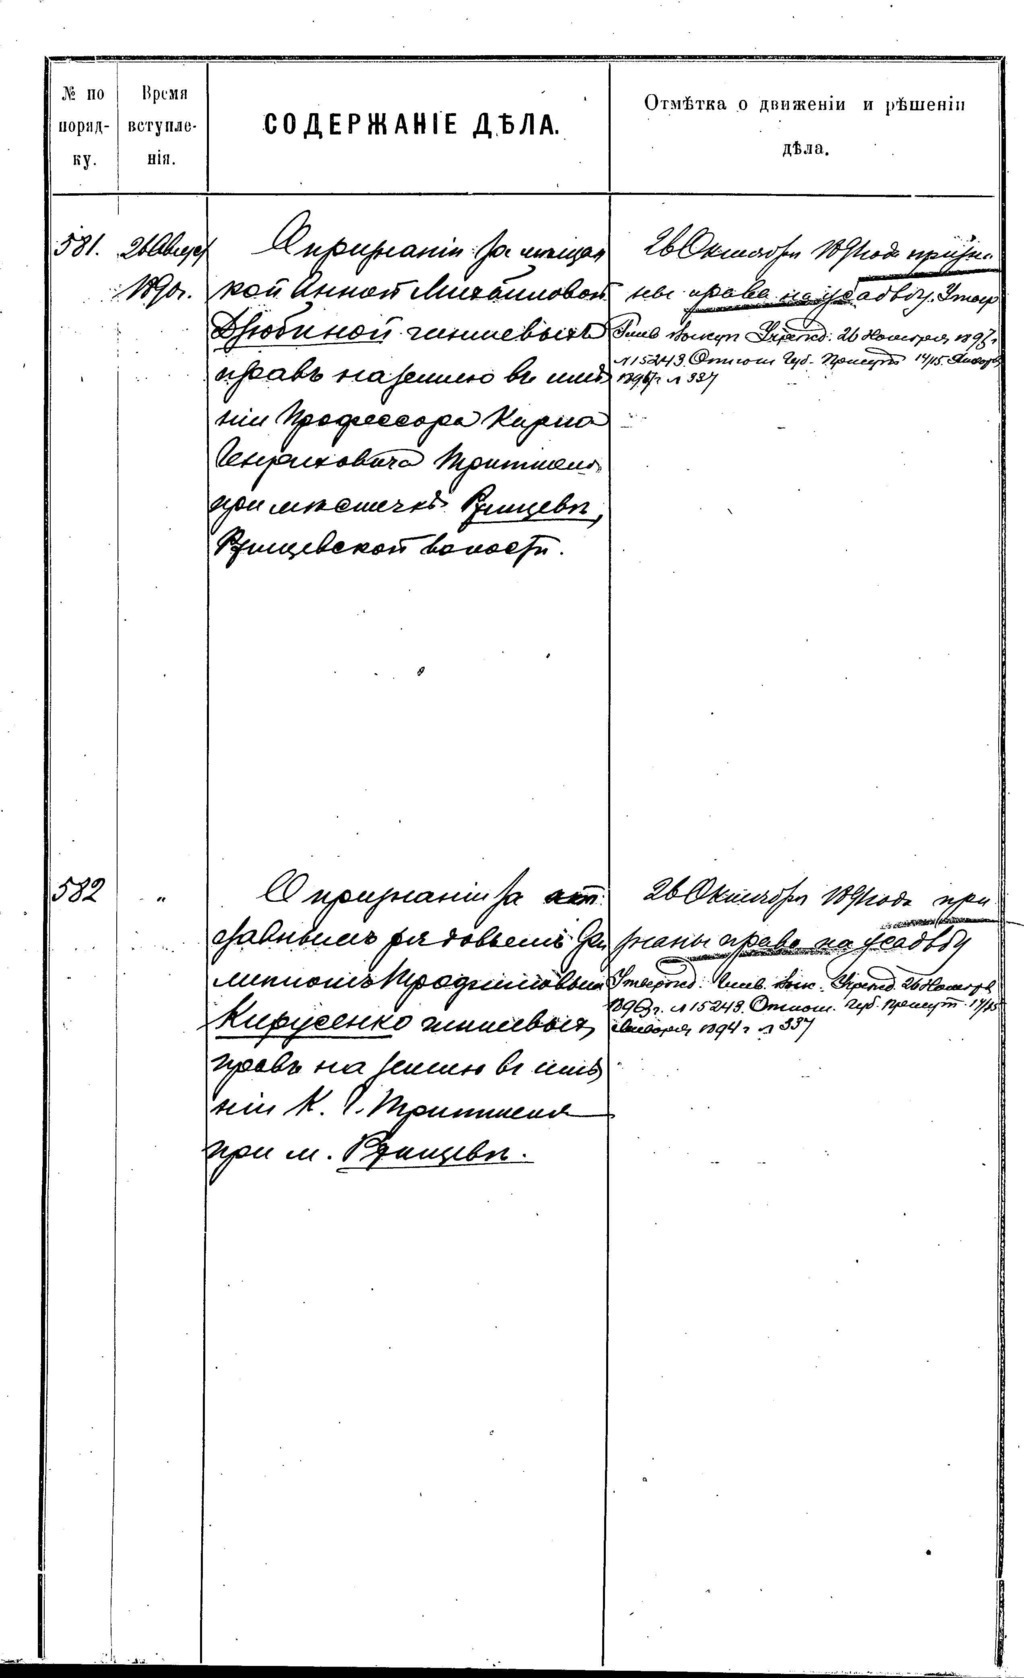 № по поряд- ку.
Время вступле- нія.
СОДЕРЖАНІЕ ДѢЛА.
Отмѣтка о движеніи и рѣшеніи
дѣла.
581.
26 Август
1890г.
О признаніи за мѣщан
кой Анной Михайловой
Дзюбиной чиншевыхъ
правъ на землю въ имѣ
ніи Профессора Кирила
при мѣстечкѣ Ржищевѣ,
Ржищевской волости.
26 Октября года призна
ны права на усадьбу. Утвер
26 Ноября
№ 15243. Отнош. Губ. Присут 17/15 Января
№ 337
582
"
О признаніи за отс
тавнымъ рядовымъ
Трофимовымъ
Кирусенко чиншевыхъ
правъ на землю въ имѣ
ніи К. Г. Тритшеля
при м. Ржищевѣ.
26 Октября года при
знаны права на усадьбу
Утвержд. 26 Ноября
№ 15243. Отнош. Губ. Присут. 17/15
Января 1894 г № 337